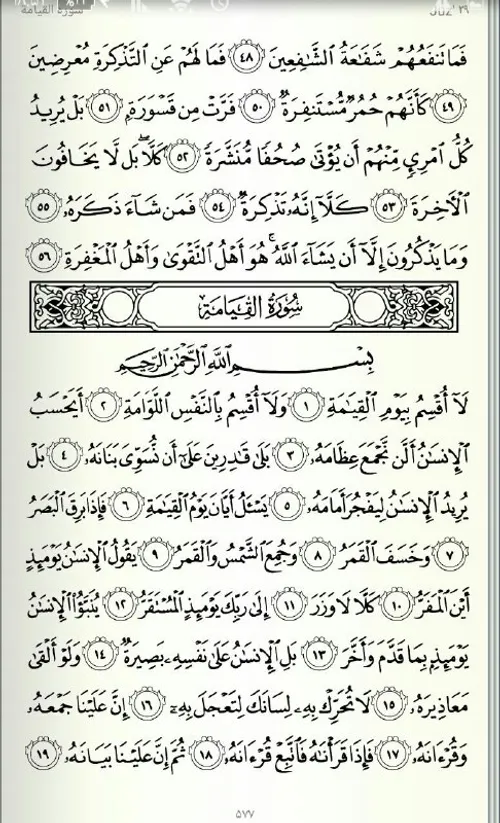 سورة القيامة JUZ' ٢٩
فَمَا تَنفَعُهُمْ شَفَٰعَةُ ٱلشَّٰفِعِينَ ٤٨ فَمَا لَهُمْ عَنِ ٱلتَّذْكِرَةِ مُعْرِضِينَ
٤٩ كَأَنَّهُمْ حُمُرٌ مُّسْتَنفِرَةٌ ٥٠ فَرَّتْ مِن قَسْوَرَةٍۭ ٥١ بَلْ يُرِيدُ
كُلُّ ٱمْرِئٍ مِّنْهُمْ أَن يُؤْتَىٰ صُحُفًا مُّنَشَّرَةً ٥٢ كَلَّا ۖ بَل لَّا يَخَافُونَ
ٱلْـَٔاخِرَةَ ٥٣ كَلَّآ إِنَّهُۥ تَذْكِرَةٌ ٥٤ فَمَن شَآءَ ذَكَرَهُۥ ٥٥
وَمَا يَذْكُرُونَ إِلَّآ أَن يَشَآءَ ٱللَّهُ ۚ هُوَ أَهْلُ ٱلتَّقْوَىٰ وَأَهْلُ ٱلْمَغْفِرَةِ ٥٦
سُورَةُ القِيَامَةِ
بِسْمِ ٱللَّهِ ٱلرَّحْمَٰنِ ٱلرَّحِيمِ
لَآ أُقْسِمُ بِيَوْمِ ٱلْقِيَٰمَةِ ١ وَلَآ أُقْسِمُ بِٱلنَّفْسِ ٱللَّوَّامَةِ ٢ أَيَحْسَبُ
ٱلْإِنسَٰنُ أَلَّن نَّجْمَعَ عِظَامَهُۥ ٣ بَلَىٰ قَٰدِرِينَ عَلَىٰٓ أَن نُّسَوِّىَ بَنَانَهُۥ ٤ بَلْ
يُرِيدُ ٱلْإِنسَٰنُ لِيَفْجُرَ أَمَامَهُۥ ٥ يَسْـَٔلُ أَيَّانَ يَوْمُ ٱلْقِيَٰمَةِ ٦ فَإِذَا بَرِقَ ٱلْبَصَرُ
٧ وَخَسَفَ ٱلْقَمَرُ ٨ وَجُمِعَ ٱلشَّمْسُ وَٱلْقَمَرُ ٩ يَقُولُ ٱلْإِنسَٰنُ يَوْمَئِذٍ
أَيْنَ ٱلْمَفَرُّ ١٠ كَلَّا لَا وَزَرَ ١١ إِلَىٰ رَبِّكَ يَوْمَئِذٍ ٱلْمُسْتَقَرُّ ١٢ يُنَبَّؤُا۟ ٱلْإِنسَٰنُ
يَوْمَئِذٍۭ بِمَا قَدَّمَ وَأَخَّرَ ١٣ بَلِ ٱلْإِنسَٰنُ عَلَىٰ نَفْسِهِۦ بَصِيرَةٌ ١٤ وَلَوْ أَلْقَىٰ
مَعَاذِيرَهُۥ ١٥ لَا تُحَرِّكْ بِهِۦ لِسَانَكَ لِتَعْجَلَ بِهِۦٓ ١٦ إِنَّ عَلَيْنَا جَمْعَهُۥ
وَقُرْءَانَهُۥ ١٧ فَإِذَا قَرَأْنَٰهُ فَٱتَّبِعْ قُرْءَانَهُۥ ١٨ ثُمَّ إِنَّ عَلَيْنَا بَيَانَهُۥ ١٩
٥٧٧